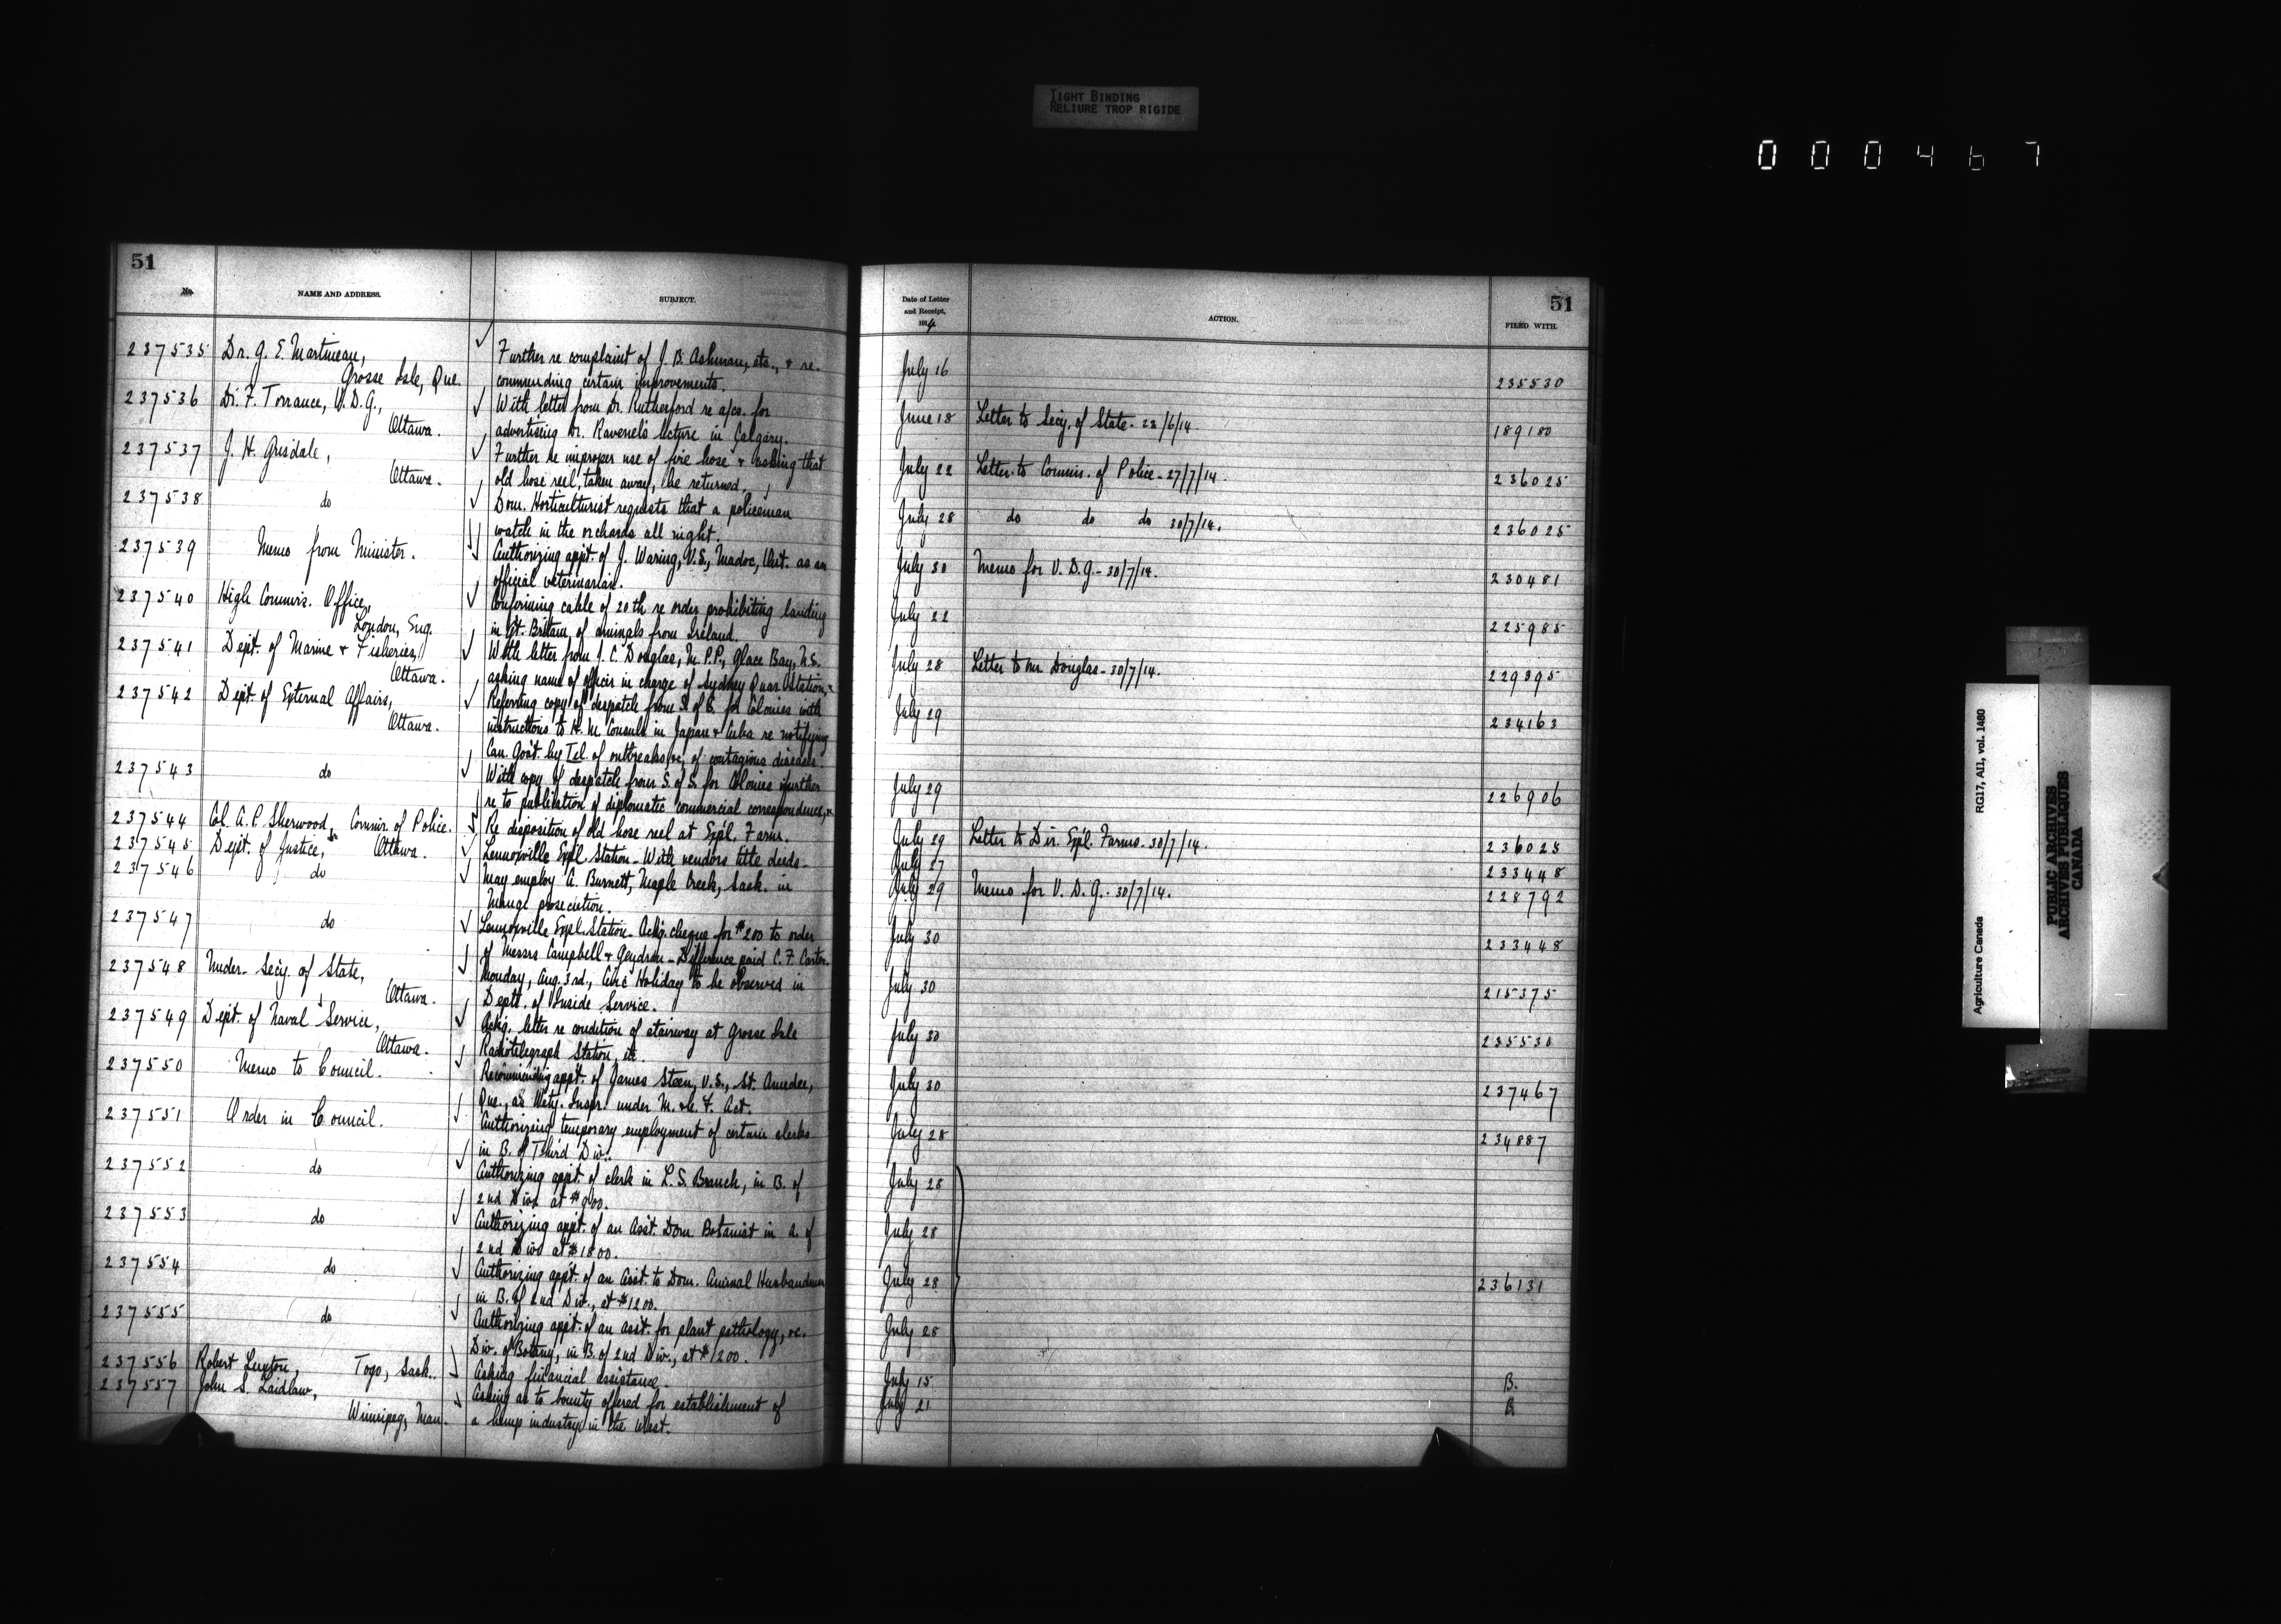 TIGHT BINDING
RELIURE TROP RIGIDE
000467
51
No.
NAME AND ADDRESS.
SUBJECT.
237535 Dr. G. E. Martineau,
Grosse Isle, Que.
Further re complaint of J. B. Ashman, etc., & re-
commending certain improvements.
237536 Dr. F. Torrance, V. D. G.,
Ottawa.
With letter from Dr. Rutherford re a/cs. for
advertising Dr. Ravenel's lecture in Calgary.
237537 J. H. Grisdale,
Ottawa.
Further re improper use of fire hose & asking that
old hose reel, taken away, be returned.
237538 do
Dom. Horticulturist requests that a policeman
watch in the orchards all night.
237539 Memo from Minister.
Authorizing appt. of J. Waring, V.S., Madoc, Ont. as an
official veterinarian.
237540 High Commr's. Office,
London, Eng.
Confirming cable of 20th re order prohibiting landing
in Gt. Britain, of animals from Ireland.
237541 Dept. of Marine & Fisheries,
Ottawa.
With letter from J. C. Douglas, M.P.P., Glace Bay, N.S.
asking name of officer in charge of Sydney Quar. Station,
237542 Dept. of External Affairs,
Ottawa.
Referring copy of despatch from S. of S. for Colonies with
instructions to H. M. Consuls in Japan & Cuba re notifying
Can. Gov't. by Tel. of outbreaks, &c., of contagious diseases
237543 do
With copy of despatch from S. of S. for Colonies further
re to publication of diplomatic commercial correspondence,
237544 Col. A. P. Sherwood, Commr. of Police.
Re disposition of old hose reel at Expl. Farm.
237545 Dept. of Justice, Ottawa.
Lennoxville Expl. Station - With vendors title deeds.
237546 do
May employ A. Burnett, Maple Creek, Sask. in
Mange prosecution.
237547 do
Lennoxville Expl. Station. Ackg. cheque for $200 to order
of Messrs Campbell & Gendron - Difference paid C. F. Carter.
237548 Under-Secy. of State,
Ottawa.
Monday, Aug. 3rd., Civic Holiday to be observed in
Deptt. of Inside Service.
237549 Dept. of Naval Service,
Ottawa.
Ackg. letter re condition of stairway at Grosse Isle
Radiotelegraph Station, etc.
237550 Memo to Council.
Recommending appt. of James Steen, V.S., St. Amedee,
Que., as Vety. Inspr. under M. & C. F. Act.
237551 Order in Council.
Authorizing temporary employment of certain clerks
in B. of Third Div.
237552 do
Authorizing appt. of clerk in L. S. Branch, in B. of
2nd Div. at $900.
237553 do
Authorizing appt. of an Asst. Dom. Botanist in A. of
2nd Div. at $1800.
237554 do
Authorizing appt. of an Asst. to Dom. Animal Husbandman
in B. of 2nd Div., at $1200.
237555 do
Authorizing appt. of an asst. for plant pathology, &c.
Div. of Botany, in B. of 2nd Div., at $1200.
237556 Robert Luxton, Togo, Sask.
Asking financial assistance.
237557 John S. Laidlaw,
Winnipeg, Man.
Asking as to bounty offered for establishment of
a hemp industry in the West.
51
Date of Letter
and Receipt,
1914
ACTION.
FILED WITH.
July 16 235530
June 18 Letter to Secy. of State - 22/6/14. 189180
July 22 Letter to Commr. of Police - 27/7/14. 236025
July 28 do do do 30/7/14. 236025
July 30 Memo for V. D. G. - 30/7/14. 230481
July 22 225985
July 28 Letter to Mr. Douglas - 30/7/14. 229395
July 29 234163
July 29 226906
July 29 Letter to Dir. Expl. Farms - 30/7/14. 236025
July 27 233448
July 29 Memo for V. D. G. - 30/7/14. 228792
July 30 233448
July 30 215375
July 30 235530
July 30 237467
July 28 234887
July 28
July 28
July 28 236131
July 28
July 15 B.
July 21 B
Agriculture Canada RG17, AII, vol. 1480
PUBLIC ARCHIVES
ARCHIVES PUBLIQUES
CANADA